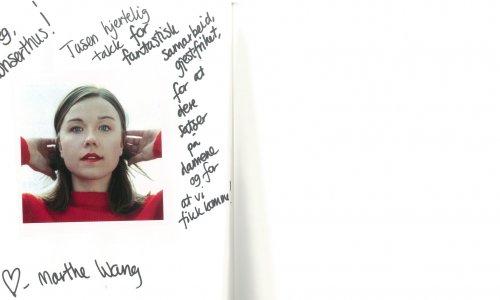 konserthus!
Tusen hjertelig
takk for
fantastisk
samarbeid,
gjestfrihet,
for at
dere
satser
på
damene
og for
at vi
fikk komme!
♡- Marthe Wang